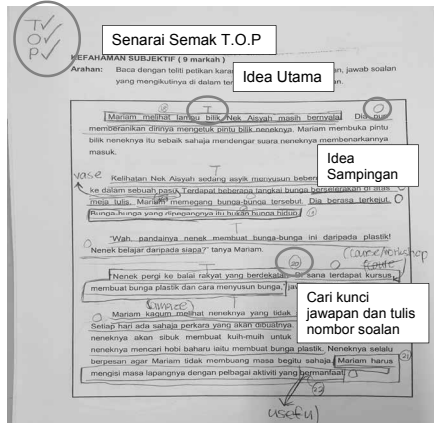 T✓
O✓
P✓
Senarai Semak T.O.P
KEFAHAMAN SUBJEKTIF ( 9 markah )
Arahan: Baca dengan teliti petikan jawab soalan
yang mengikutinya di dalam
Idea Utama
T
O
Mariam melihat lampu bilik Nek Aisyah masih bernyala. Dia pun
memberanikan dirinya mengetuk pintu bilik neneknya. Mariam membuka pintu
bilik neneknya itu sebaik sahaja mendengar suara neneknya membenarkannya
masuk.
Idea
Sampingan
T
vase
Kelihatan Nek Aisyah sedang asyik menyusun
ke dalam sebuah pasu. Terdapat beberapa tangkai bunga berselerakan di atas
meja tulis. Mariam memegang bunga-bunga tersebut. Dia berasa terkejut. O
Bunga-bunga yang dipegangnya itu bukan bunga hidup.
T
"Wah, pandainya nenek membuat bunga-bunga ini daripada plastik!
O Nenek belajar daripada siapa?" tanya Mariam.
T
20
O
Nenek pergi ke balai rakyat yang berdekatan. Di sana terdapat kursus
membuat bunga plastik dan cara menyusun bunga,"
Cari kunci
jawapan dan tulis
nombor soalan
T
(amaze)
O Mariam kagum melihat neneknya yang tidak
Setiap hari ada sahaja perkara yang akan dibuatnya.
neneknya akan sibuk membuat kuih-muih untuk
neneknya mencari hobi baharu iaitu membuat bunga plastik. Neneknya selalu
berpesan agar Mariam tidak membuang masa begitu sahaja. Mariam harus
mengisi masa lapangnya dengan pelbagai aktiviti yang bermanfaat. O
useful